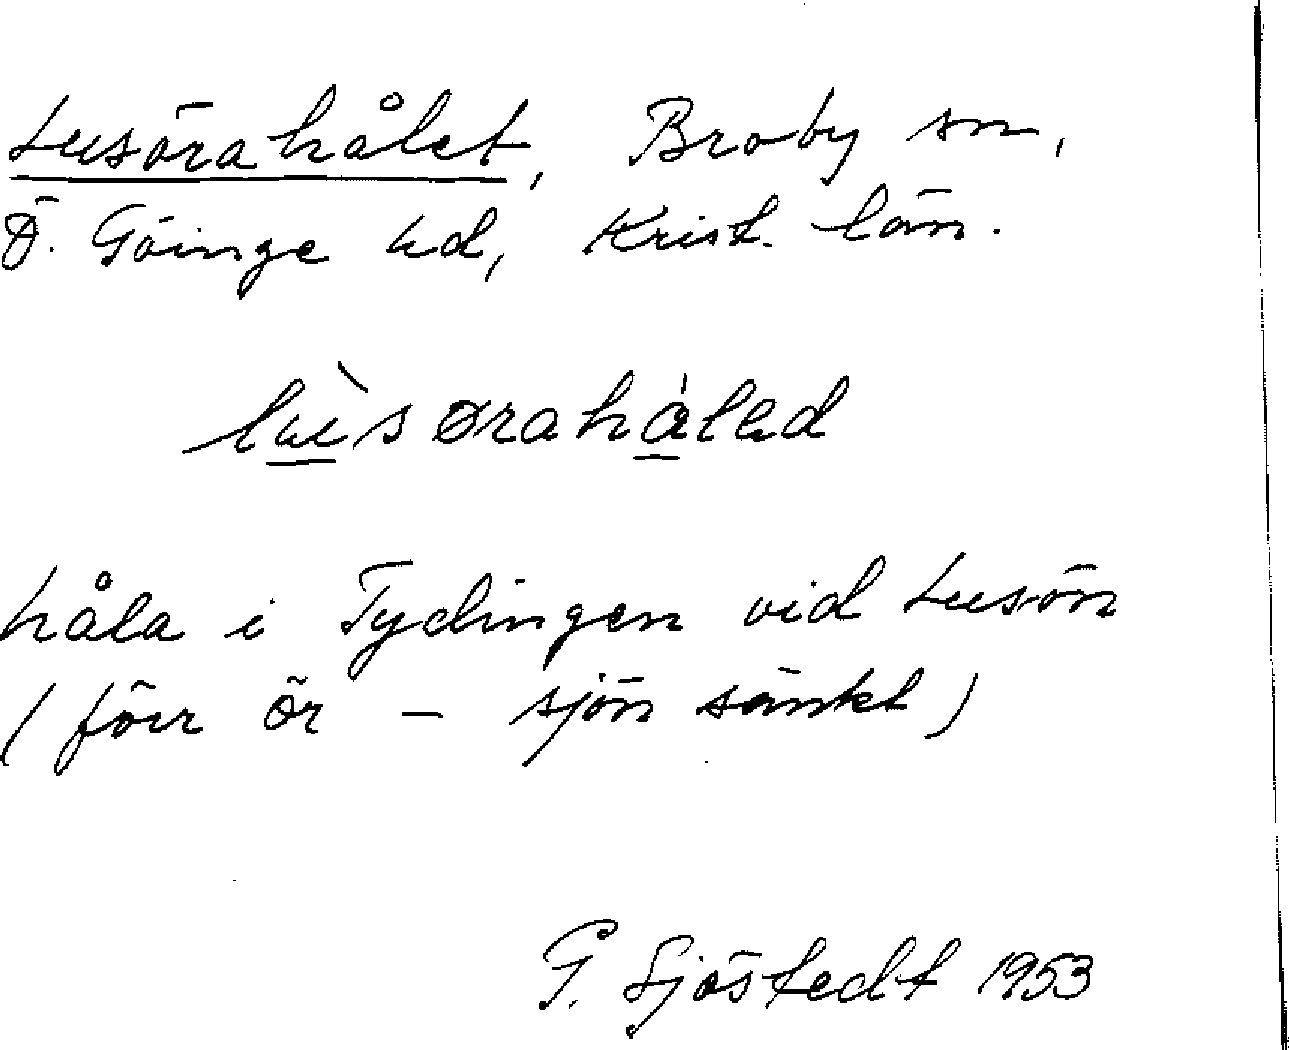 Lusörahålet, Broby sn,
Ö. Göinge hd, Krist. län.
lùsørahålad
håla i Tydingen vid Lusön
(förr ör – sjön sänkt)
G. Sjöstedt 1953